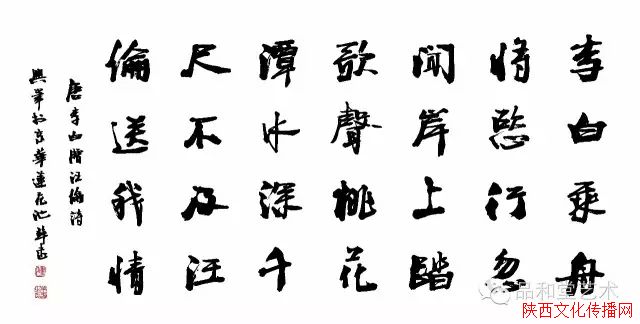 李白乘舟
將慾行忽
聞岸上踏
歌聲桃花
潭水深千
尺不及汪
倫送我情
唐李白贈汪倫詩
興華於京華蓮花池畔書
品和堂艺术
陕西文化传播网